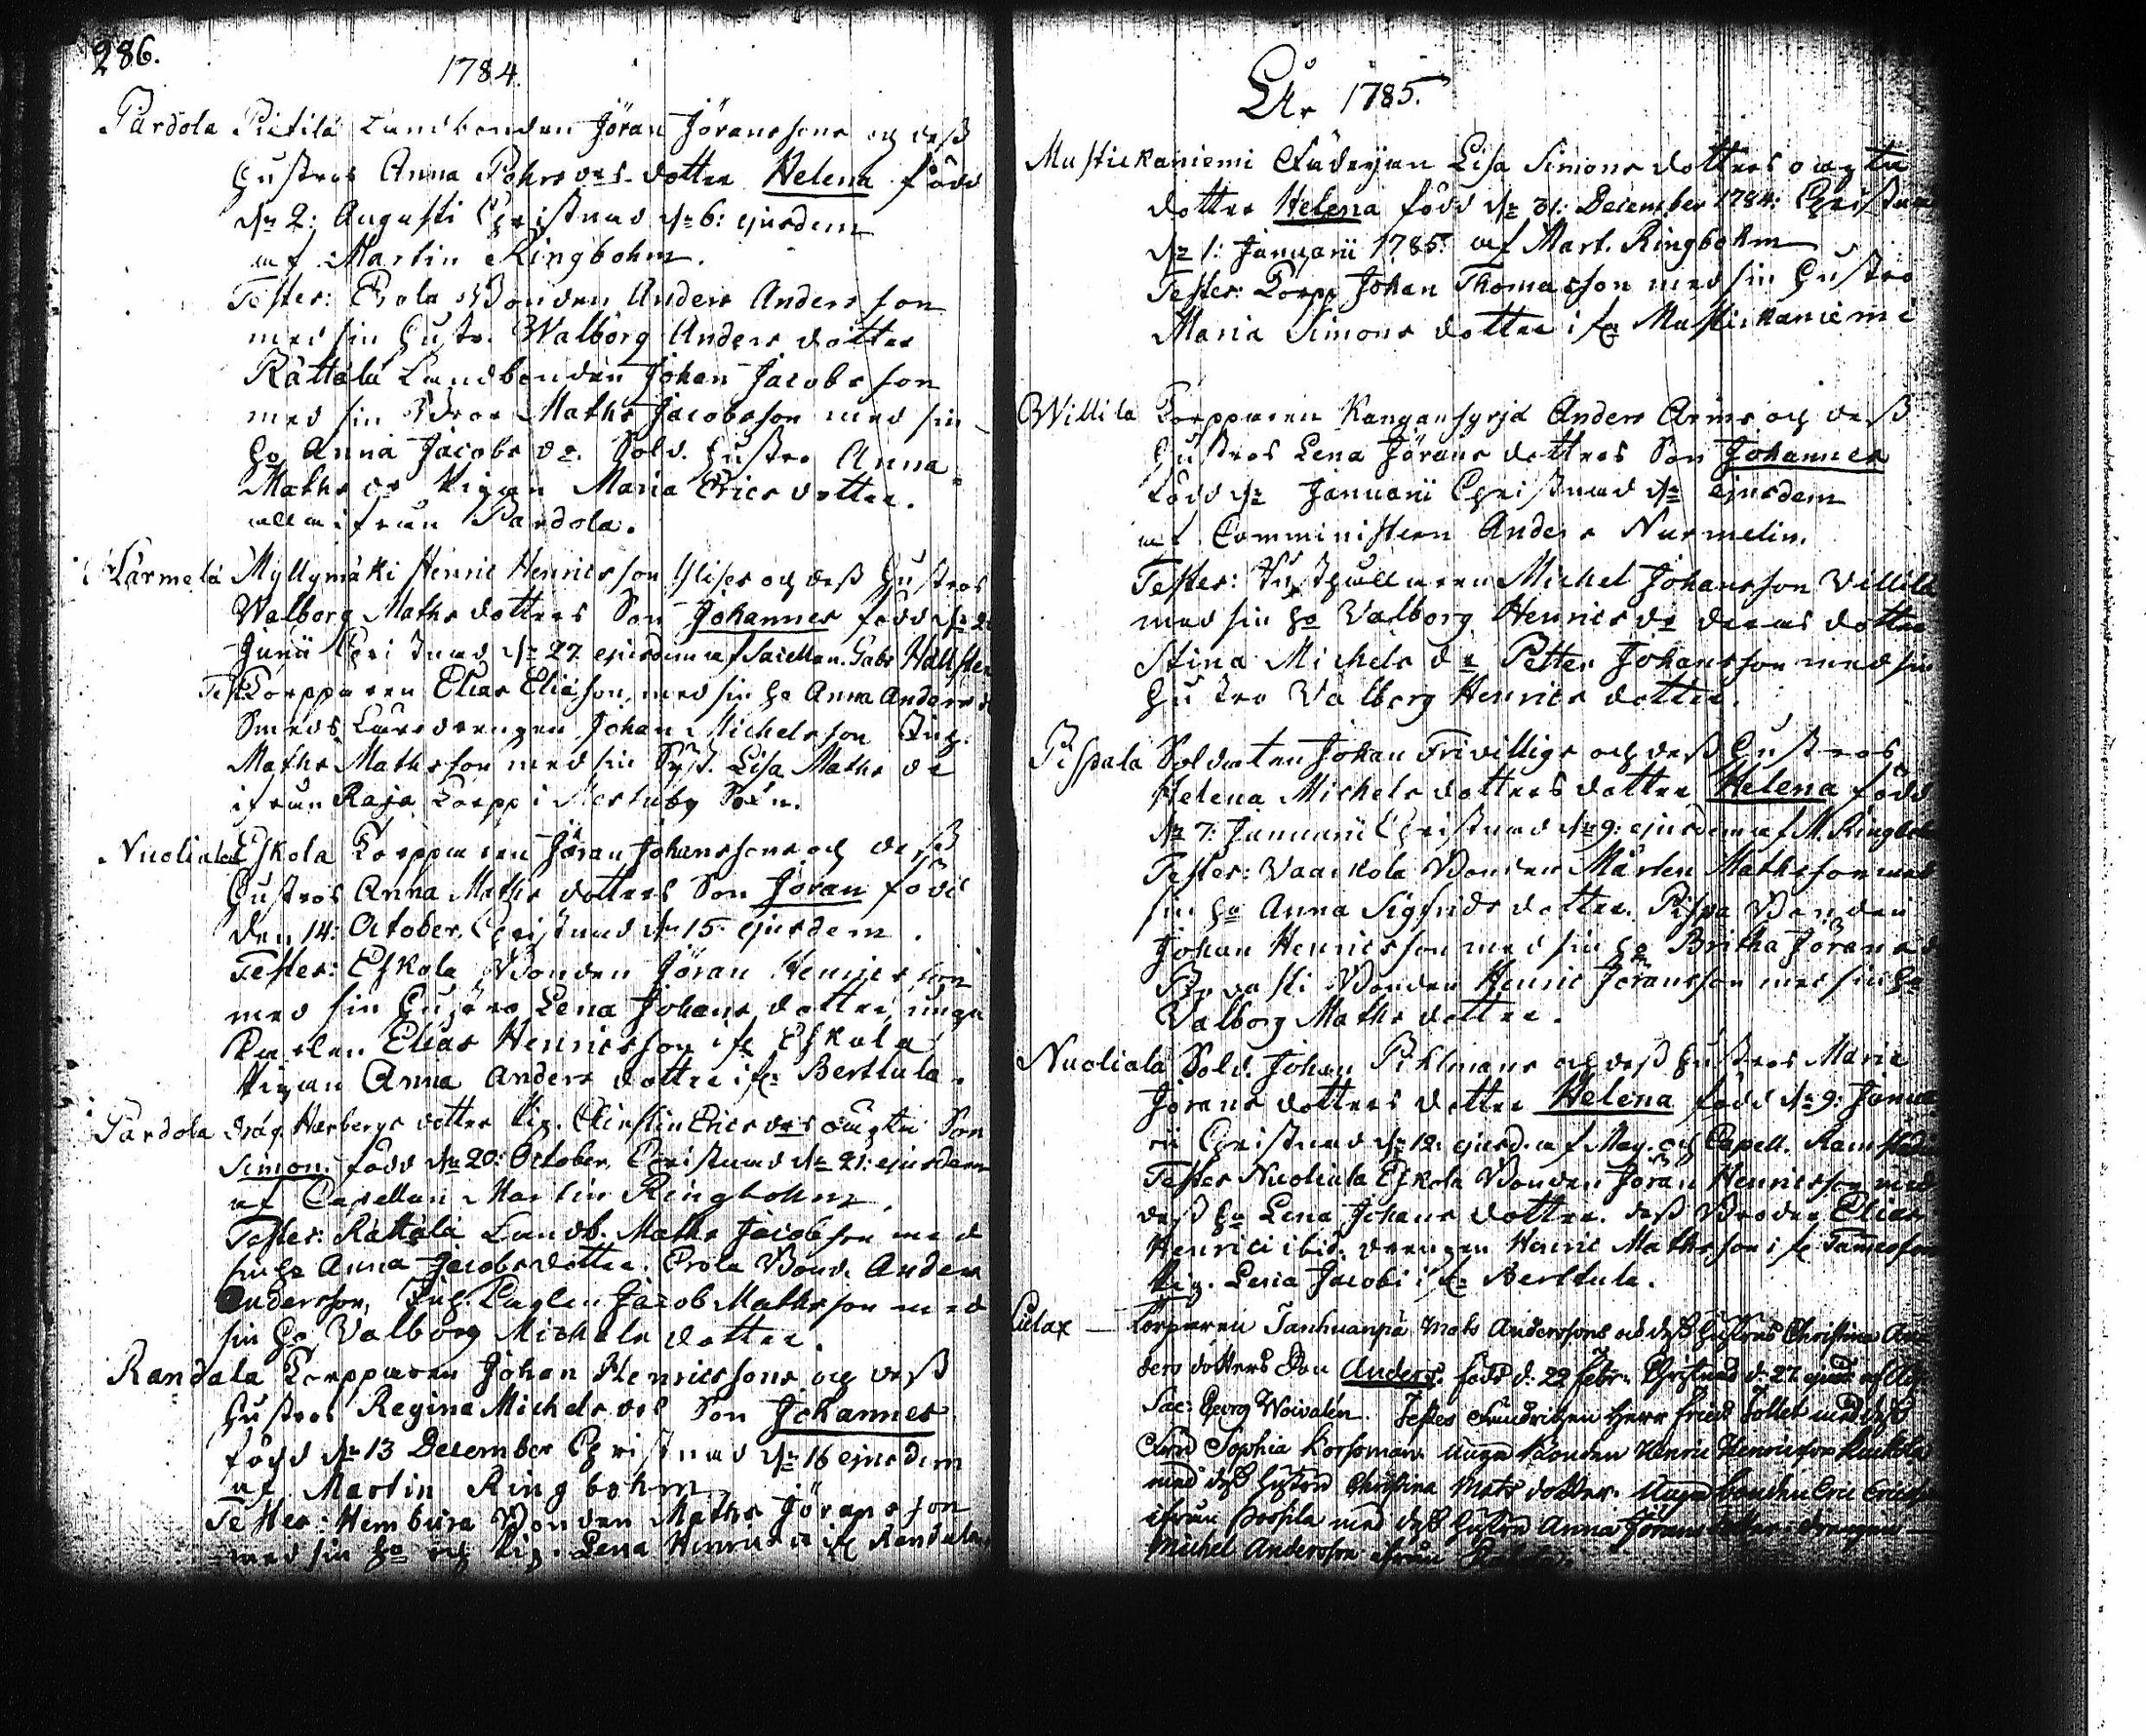 286.
1784.
Pardola Pietilä Landbonden Jöran Jöranssons och dess
hustrus Anna Pehrs drs dotter Helena född
dn 2: Augusti Christnad dn 6: ejusdem
af Martin Ringbohm.
Testes: Erola Bonden Anders Andersson
med sin hustr. Walborg Anders dotter
Rättälä Landbonden Johan Jacobsson
med sin Broer Maths Jacobsson med sin
ho Anna Jacobs dr. Sold. hustro Anna
Maths dr Pigan Maria Erics dotter.
alla ifrån Pardola.
Kärmelä Myllymäki Henric Henricsson och dess hustros
Walborg Maths dottres Son Johannes född dn
Junii Christnad dn 27 ejusdem af Sacellan. Gabr. Hallsten
Test. Torpparen Elias Eliæson med sin ho Anna Anders
Smeds Läredrengen Johan Michelsson
Maths Mathsson med sin Syst. Lisa Maths dr
ifrån Raja Torpp i Sokn.
Nuoliala Eskola Torpparen Jöran Johanssons och dess
hustros Anna Maths dottres Son Jöran född
den 14: October. Christnad dn 15 ejusdem.
Testes: Eskola Bonden Jöran Henricsson
med sin hustro Lena Johans dotter, unga
Karlen Elias Henricsson ifr Eskola
Pigan Anna Anders dotter ifr: Berttula.
Pardola Harbergs dotter Pig. Christin Erics drs oägta Son
Simon. född dn 20: October, Christnad dn 21: ejusdem
af Capellan Martin Ringbohm
Testes: Rättälä Landb. Maths Jacobson med
sin ho Anna Jacobs dotter. Erola Bond. Anders
Andersson, Jacob Mathsson med
sin ho Valborg Michels dotter.
Randala Torpparen Johan Henricssons och dess
hustros Regina Michels drs Son Johannes
född dn 13 December Christnad dn 16 ejusdem
af Martin Ringbohm
Testes: Hemburs Bonden Maths Jöransson
med sin ho och Pig. Lena Henrici ifr Randala
År 1785.
Mustiekaniemi Lisa Simons dottres oägta
dotter Helena född dn 31: December 1784: Christnad
dn 1: Januarii 1785: af Mart. Ringbohm
Testes: Torpp Johan Thomasson med sin hustro
Maria Simons dotter ifr Mustiekaniemi
Willila Torpparen Kangansyrjä Anders Arms och dess
hustros Lena Jörans dottres Son Johannes
född dn Januarii Christnad dn ejusdem
af Comministern Anders Nurmelin.
Testes: Rusthållaren Michel Johansson Villilä
med sin ho Valborg Henrics dr deras dotter
Stina Michels dr Petter Johansson med sin
hustro Valborg Henrics dotter.
Pispala Soldaten Johan Frivilligs och dess hustros
Helena Michels dottres dotter Helena född
dn 7: Januarii Christnad dn 9: ejusdem af M. Ringbohm
Testes: Vaarkola Bonden Mårten Mathsson med
sin ho Anna Sigfrids dotter. Pispa Bonden
Johan Henricsson med sin ho Britha Jörans
Provasti Bonden Henric Jöransson med sin ho
Valborg Maths dotter.
Nuoliala Sold. Johan Pihlmans och dess hustros Maria
Jörans dottres dotter Helena född dn 9: Janua
rii Christnad dn 12: ejusd. af Mag. och Capell. Ramstadius
Testes Nuoliala Eskola Bonden Jöran Henricsson med
dess ho Lena Johans dotter. dess Broder Elias
Henrici ibid. drengen Henric Mathsson ifr
Pig. Lena Jacobi ifr: Berttula.
Lulax — Torparen Tanhuanpä Mats Anderssons och dess hustrus Christina An
ders dotters Son Anders. född d: 22 febr. Christnad d: 27 ejusd. af
Sac: Georg Woivalin. Testes Fändriken Herr Fried. Tollet med dess
Fru Sophia Korsman. unga bonden Henric Henricsson
med dess hustru Christina Mats dotter. unga bonden Eric Ericsson
ifrån Possila med dess hustru Anna Jörans dotter. drengen
Michel Andersson ifrån